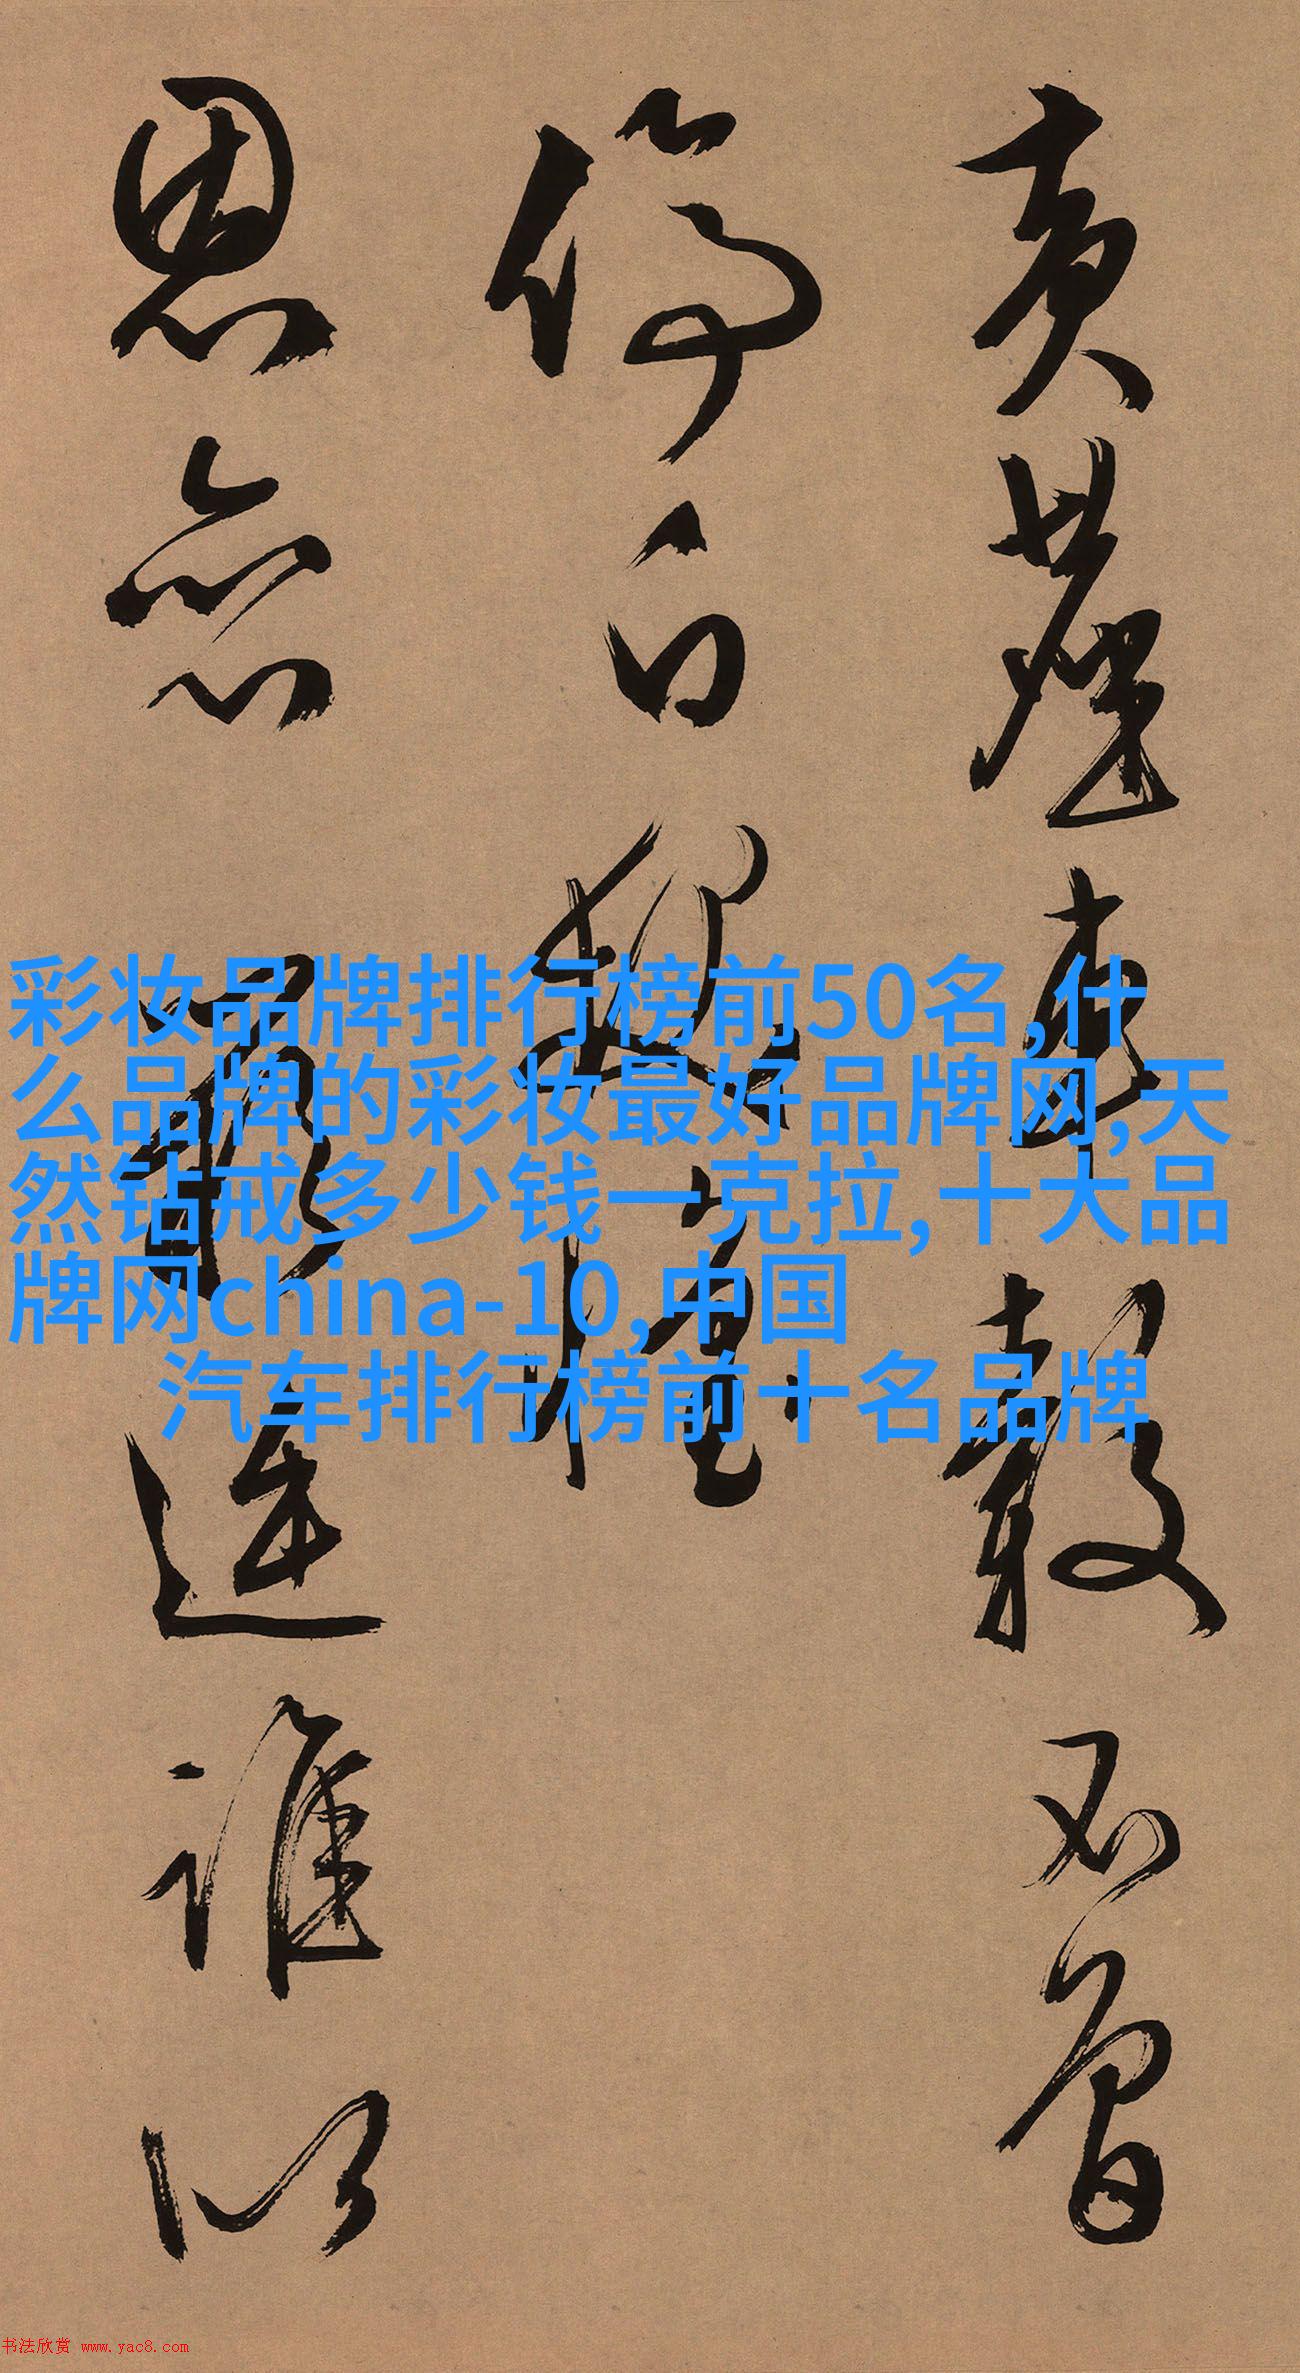 黄塵車轂不曾
停白
恩亦連誰以
彩妆品牌排行榜前50名,什
么品牌的彩妆最好品牌网,天
然钻戒多少钱一克拉,十大品
牌网china-10,中国
汽车排行榜前十名品牌
书法欣赏 www.yac8.com